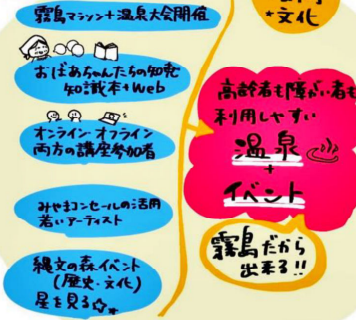 霧島マラソン+温泉大会開催
おばあちゃんたちの知恵
知識本+Web
オンライン オフライン
両方の講座参加者
みやまコンセールの活用
若いアーティスト
縄文の森イベント
(歴史・文化)
星を見る☆
*文化
高齢者も障がい者も
利用しやすい
温泉
+
イベント
霧島だから
出来る!!